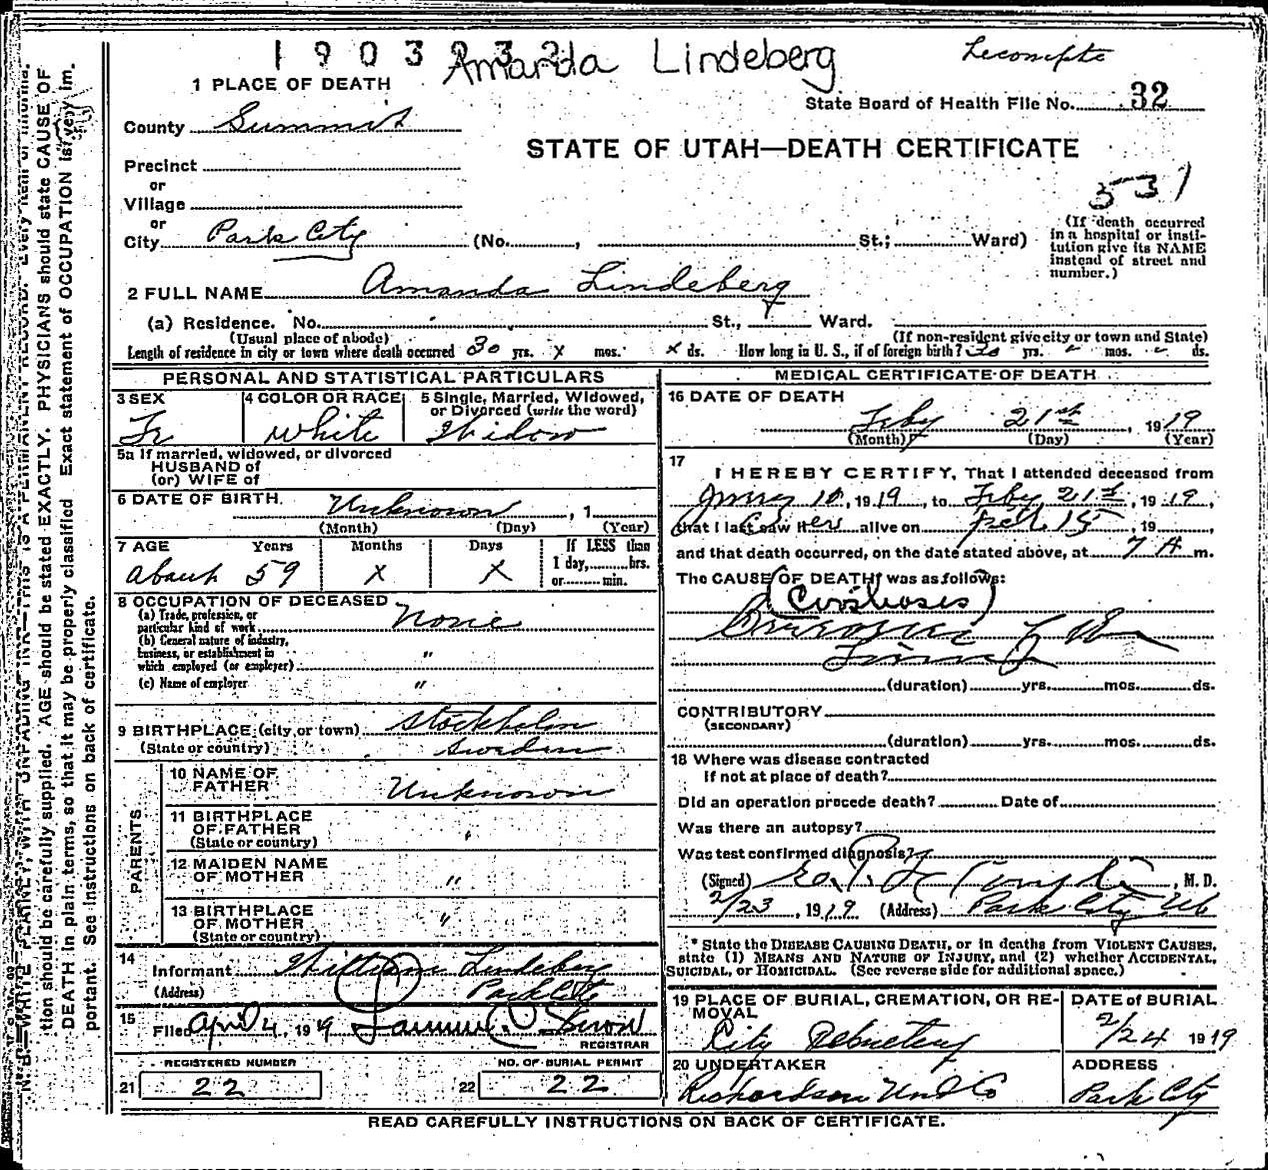 1903032
Amanda Lindeberg
Lecompte
1 PLACE OF DEATH
State Board of Health File No. 32
County Summit
STATE OF UTAH—DEATH CERTIFICATE
Precinct
or
Village
531
or
City Park City (No. , St.; Ward)
(If death occurred in a hospital or institution give its NAME instead of street and number.)
2 FULL NAME Amanda Lindeberg
(a) Residence. No. St., Ward.
(Usual place of abode) (If non-resident give city or town and State)
Length of residence in city or town where death occurred 30 yrs. x mos. x ds. How long in U. S., if of foreign birth? yrs. " mos. " ds.
PERSONAL AND STATISTICAL PARTICULARS
3 SEX 4 COLOR OR RACE 5 Single, Married, Widowed, or Divorced (write the word)
Fe White Widow
5a If married, widowed, or divorced
HUSBAND of
(or) WIFE of
6 DATE OF BIRTH. Unknown , 1
(Month) (Day) (Year)
7 AGE Years Months Days If LESS than 1 day, hrs. or min.
about 59 x x
8 OCCUPATION OF DECEASED
(a) Trade, profession, or particular kind of work None
(b) General nature of industry, business, or establishment in which employed (or employer) "
(c) Name of employer "
9 BIRTHPLACE (city or town) Stockholm
(State or country) Sweden
PARENTS
10 NAME OF FATHER Unknown
11 BIRTHPLACE OF FATHER (State or country) "
12 MAIDEN NAME OF MOTHER "
13 BIRTHPLACE OF MOTHER (State or country) "
14 Informant Lindeberg
(Address) Park City
15 Filed April 4, 1919
REGISTRAR
REGISTERED NUMBER NO. OF BURIAL PERMIT
21 22 22 22
MEDICAL CERTIFICATE OF DEATH
16 DATE OF DEATH
Feby 21st, 1919
(Month) (Day) (Year)
17 I HEREBY CERTIFY, That I attended deceased from
10, 1919, to Feby 21st, 1919,
that I last saw her alive on Feb 15, 19
and that death occurred, on the date stated above, at 7 A m.
The CAUSE OF DEATH was as follows:
(Cirrhosis)
(duration) yrs. mos. ds.
CONTRIBUTORY
(SECONDARY)
(duration) yrs. mos. ds.
18 Where was disease contracted
if not at place of death?
Did an operation precede death? Date of
Was there an autopsy?
Was test confirmed diagnosis?
(Signed) , M. D.
2/23, 1919 (Address) Park City Ut
* State the DISEASE CAUSING DEATH, or in deaths from VIOLENT CAUSES, state (1) MEANS AND NATURE OF INJURY, and (2) whether ACCIDENTAL, SUICIDAL, or HOMICIDAL. (See reverse side for additional space.)
19 PLACE OF BURIAL, CREMATION, OR REMOVAL DATE of BURIAL
City Cemetery 2/24 1919
20 UNDERTAKER ADDRESS
Richardson Und Co Park City
READ CAREFULLY INSTRUCTIONS ON BACK OF CERTIFICATE.
tion should be carefully supplied. AGE should be stated EXACTLY. PHYSICIANS should state CAUSE OF
DEATH in plain terms, so that it may be properly classified Exact statement of OCCUPATION is very im-
portant. See instructions on back of certificate.